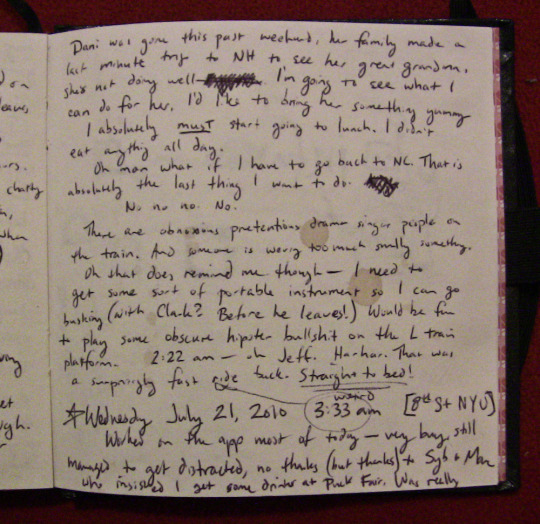 d on
leaves
rs.
chatty
n,
when
)
way
et
ugh.
Dani was gone this past weekend, her family made a
last minute trip to NH to see her great grandma,
she's not doing well— I'm going to see what I
can do for her. I'd like to bring her something yummy
I absolutely must start going to lunch. I didn't
eat anything all day.
Oh man what if I have to go back to NC. That is
absolutely the last thing I want to do.
No no no. No.
There are obnoxious pretentious drama singer people on
the train. And someone is wearing too much smelly something.
Oh that does remind me though— I need to
get some sort of portable instrument so I can go
busking (with Clark? Before he leaves!) Would be fun
to play some obscure hipster bullshit on the L train
platform. 2:22 am — oh Jeff. Harhar. That was
a surprisingly fast ride back. Straight to bed!
weird
*Wednesday July 21, 2010 3:33 am [8th St NYU]
Worked on the app most of today — very busy, still
managed to get distracted, no thanks (but thanks) to Syb +
who insisted I get some drinks at Puck Fair. Was really